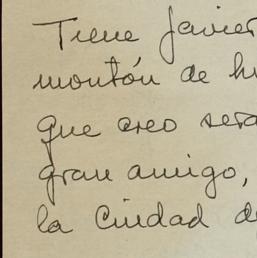 Tiene Javier
montón de
que creo será
gran amigo,
la Ciudad de